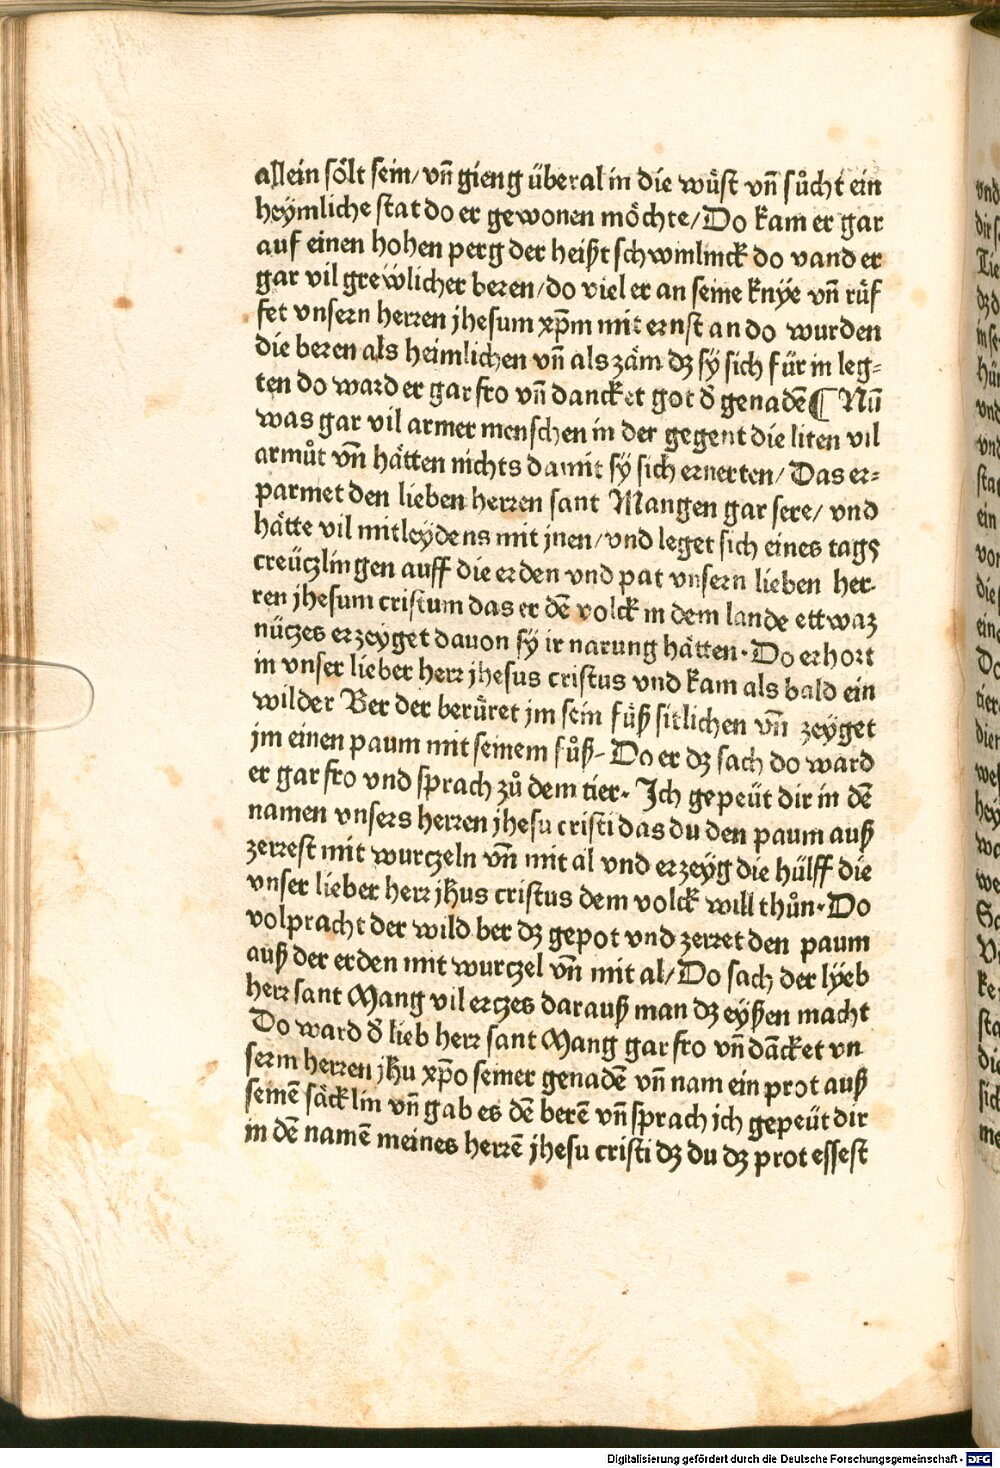 allein sölt sein/ vñ gieng überal in die wüst vñ sůcht ein
heÿmliche stat do er gewonen möchte/ Do kam er gar
auf einen hohen perg der heißt schwinlinck do vand er
gar vil grewlicher beren/ do viel er an seine knÿe vñ rüf
fet vnsern herren jhesum xp̃m mit ernst an do wurden
die beren als heimlichen vñ als zäm dz sÿ sich für in leg⸗
ten do ward er gar fro vñ dancket got d̕ genadẽ ¶ Nũ
was gar vil armer menschen in der gegent die liten vil
armůt vñ hätten nichts damit sÿ sich ernerten/ Das er⸗
parmet den lieben herren sant Mangen gar sere/ vnd
hätte vil mitleÿdens mit jnen/ vnd leget sich eines tags
creüczlingen auff die erden vnd pat vnsern lieben her⸗
ren jhesum cristum das er dẽ volck in dem lande ettwaz
nüczes erzeyget davon sÿ ir narung hätten. Do erhort
in vnser lieber herr jhesus cristus vnd kam als bald ein
wilder Ber der berüret jm sein füß sitlichen vñ zeÿget
jm einen paum mit seinem fůß. Do er dz sach do ward
er gar fro vnd sprach zů dem tier. Ich gepeüt dir in dẽ
namen vnsers herren jhesu cristi das du den paum auß
zerrest mit wurczeln vñ mit al vnd erzeÿg die hülff die
vnser lieber herr jh̃us cristus dem volck will thůn. Do
volpracht der wild ber dz gepot vnd zerret den paum
auß der erden mit wurczel vñ mit al/ Do sach der lÿeb
herr sant Mang vil erczes darauß man dz eÿßen macht
Do ward d̕ lieb herr sant Mang gar fro vñ dãcket vn
serm herren jh̃u xp̃o seiner genadẽ vñ nam ein prot auß
seinẽ säcklin vñ gab es dẽ berẽ vñ sprach ich gepeüt dir
in dẽ namẽ meines herrẽ jhesu cristi dz du dz prot essest
Digitalisierung gefördert durch die Deutsche Forschungsgemeinschaft - DFG